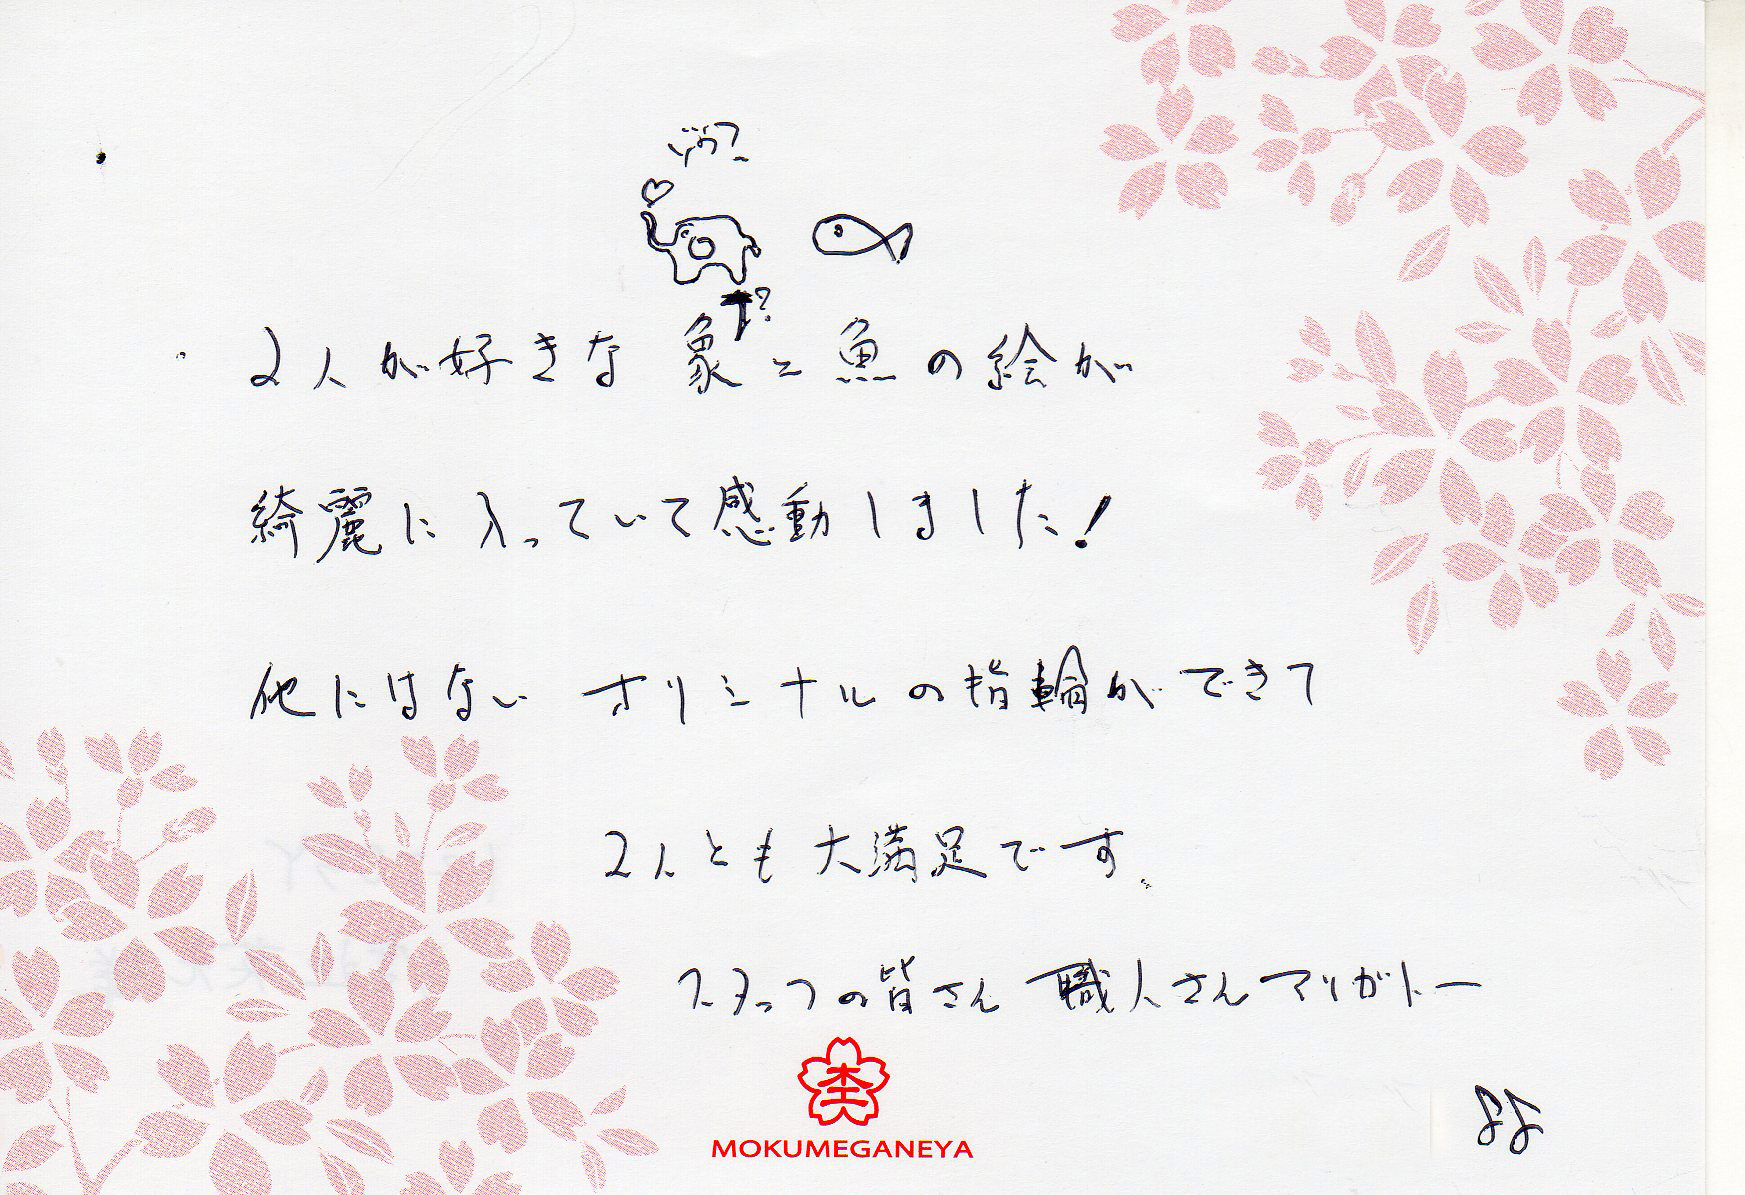 2人が好きな 象と魚の絵が
綺麗に入っていて感動しました!
他にはない オリジナルの指輪ができて
2人とも大満足です。
スタッフの皆さん 職人さんアリガトー
MOKUMEGANEYA